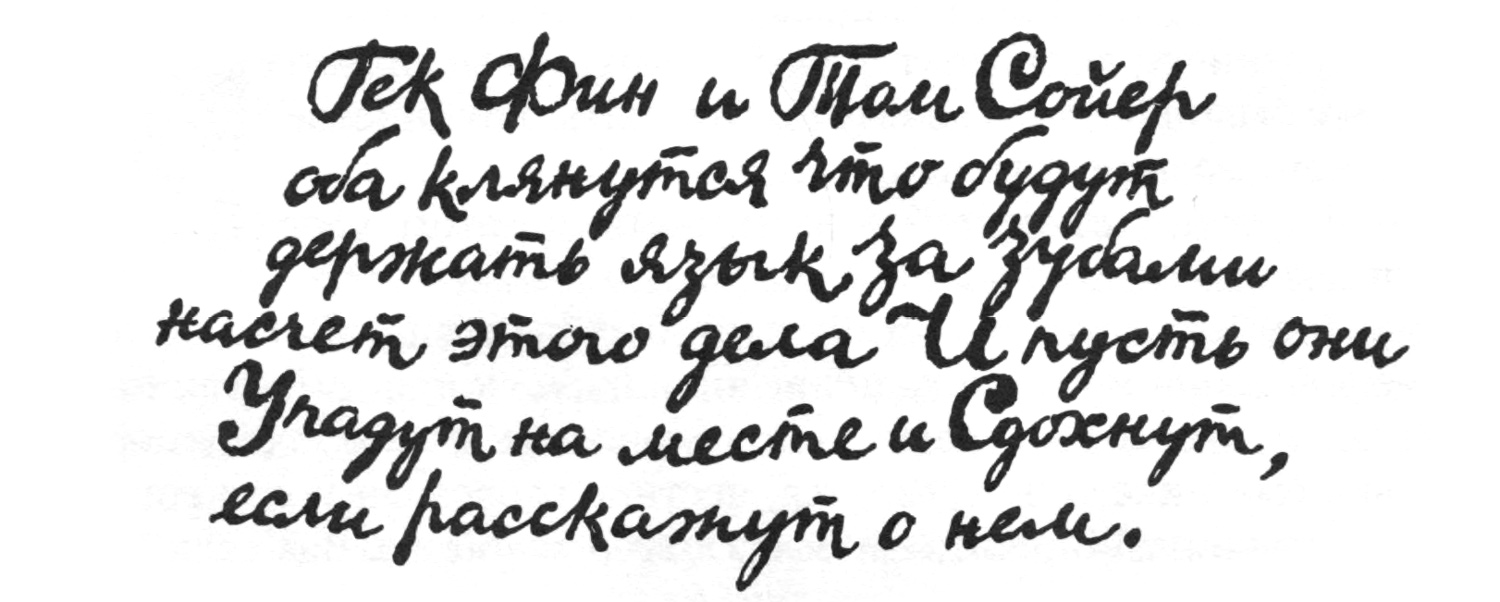 Гек Фин и Том Сойер
оба клянутся что будут
держать язык за зубами
насчет этого дела И пусть они
Упадут на месте и Сдохнут,
если расскажут о нем.